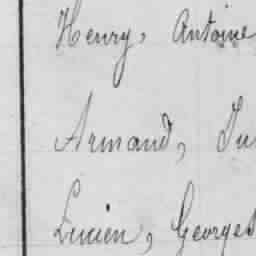 Henry, Antoine
Armand, Ju
Lucien, Georges